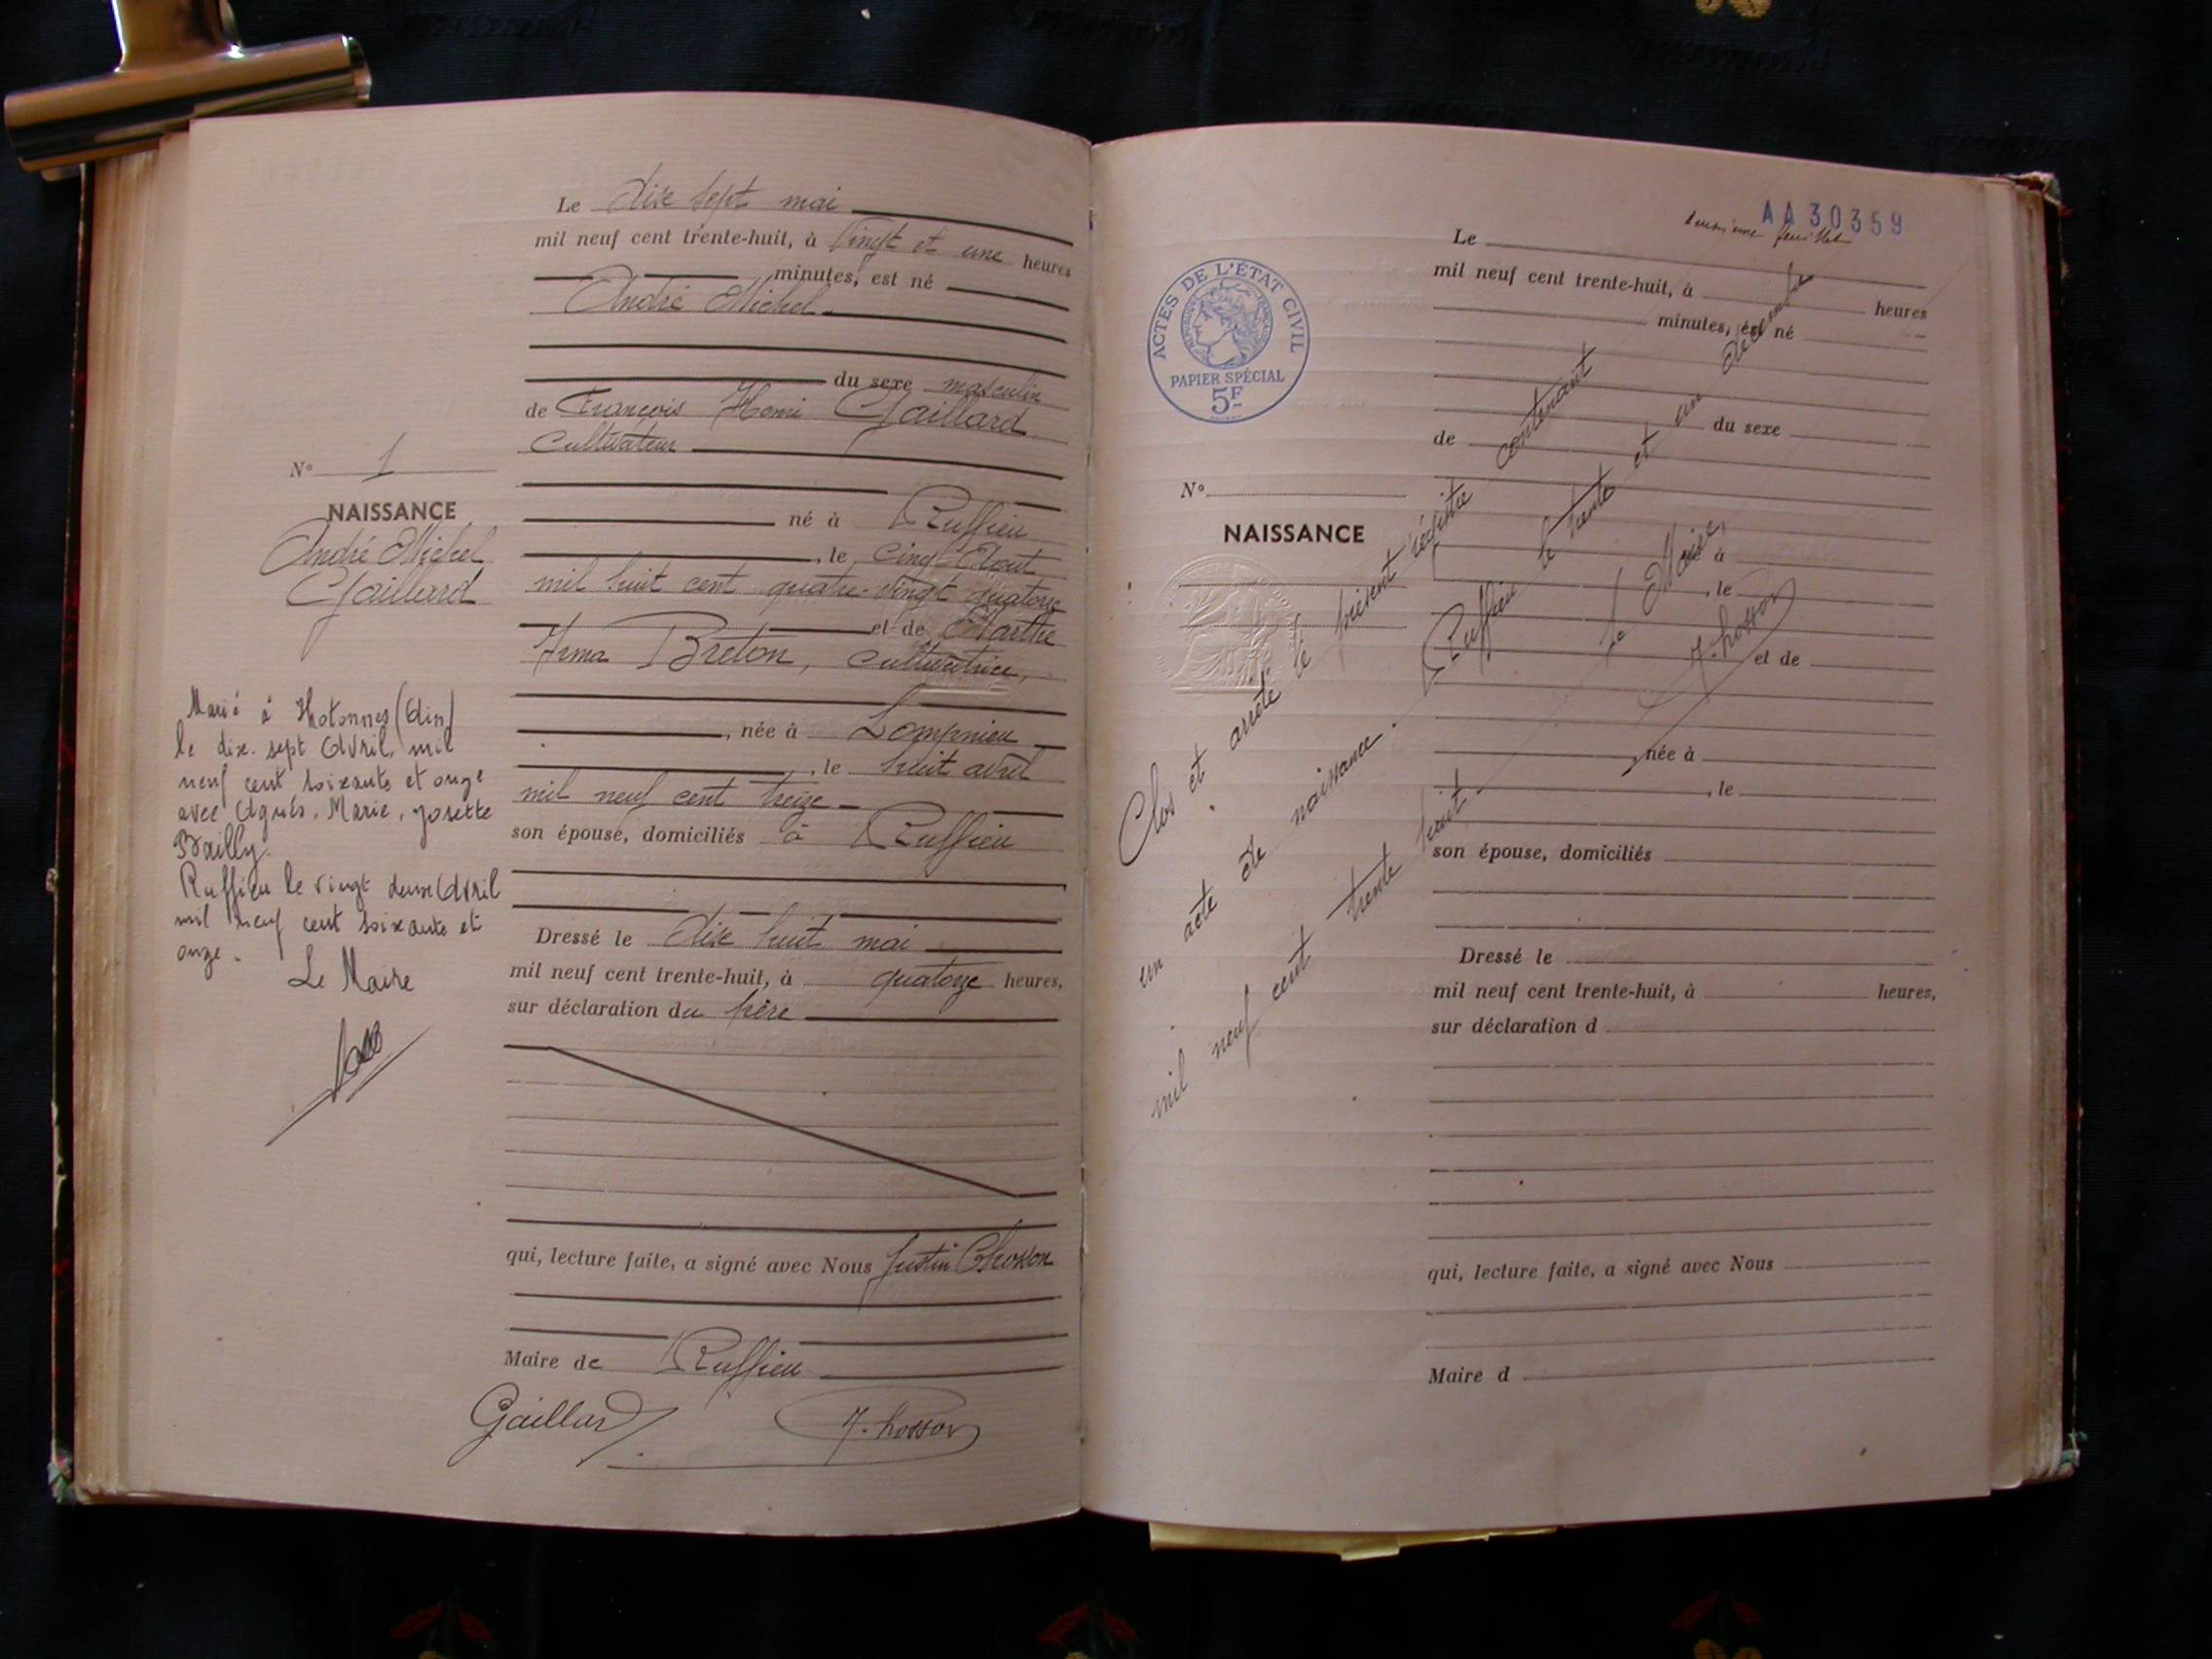 Le dix sept mai
mil neuf cent trente-huit, à Vingt et une heures
minutes, est né
André Michel
du sexe masculin
de François Henri Gaillard
Cultivateur
né à Ruffieu
, le cinq Aout
mil huit cent quatre-vingt quatorze
et de Marthe
Irma Breton, cultivatrice,
, née à Lompnieu
, le huit avril
mil neuf cent treize
son épouse, domiciliés à Ruffieu
Dressé le dix huit mai
mil neuf cent trente-huit, à quatorze heures,
sur déclaration du père
qui, lecture faite, a signé avec Nous Justin Chosson
Maire de Ruffieu
Gaillard
J. Chosson
N° 1
NAISSANCE
André Michel
Gaillard
Marié à Hotonnes (Ain)
le dix-sept Avril mil
neuf cent soixante et onze
avec Agnès, Marie, Josette
Bailly.
Ruffieu le vingt deux Avril
mil neuf cent soixante et
onze.
Le Maire
AA 30359
deuxième feuillet
ACTES DE L'ÉTAT CIVIL
RÉPUBLIQUE FRANÇAISE
PAPIER SPÉCIAL
5F
Le
mil neuf cent trente-huit, à heures
minutes, est né
du sexe
de
N°
NAISSANCE
né à
, le
et de
, née à
, le
son épouse, domiciliés
Dressé le
mil neuf cent trente-huit, à heures,
sur déclaration d
qui, lecture faite, a signé avec Nous
Maire d
Clos et arrêté le présent régistre contenant
un acte de naissance. Ruffieu le trente et un Décembre
mil neuf cent trente huit.
Le Maire,
J. Chosson